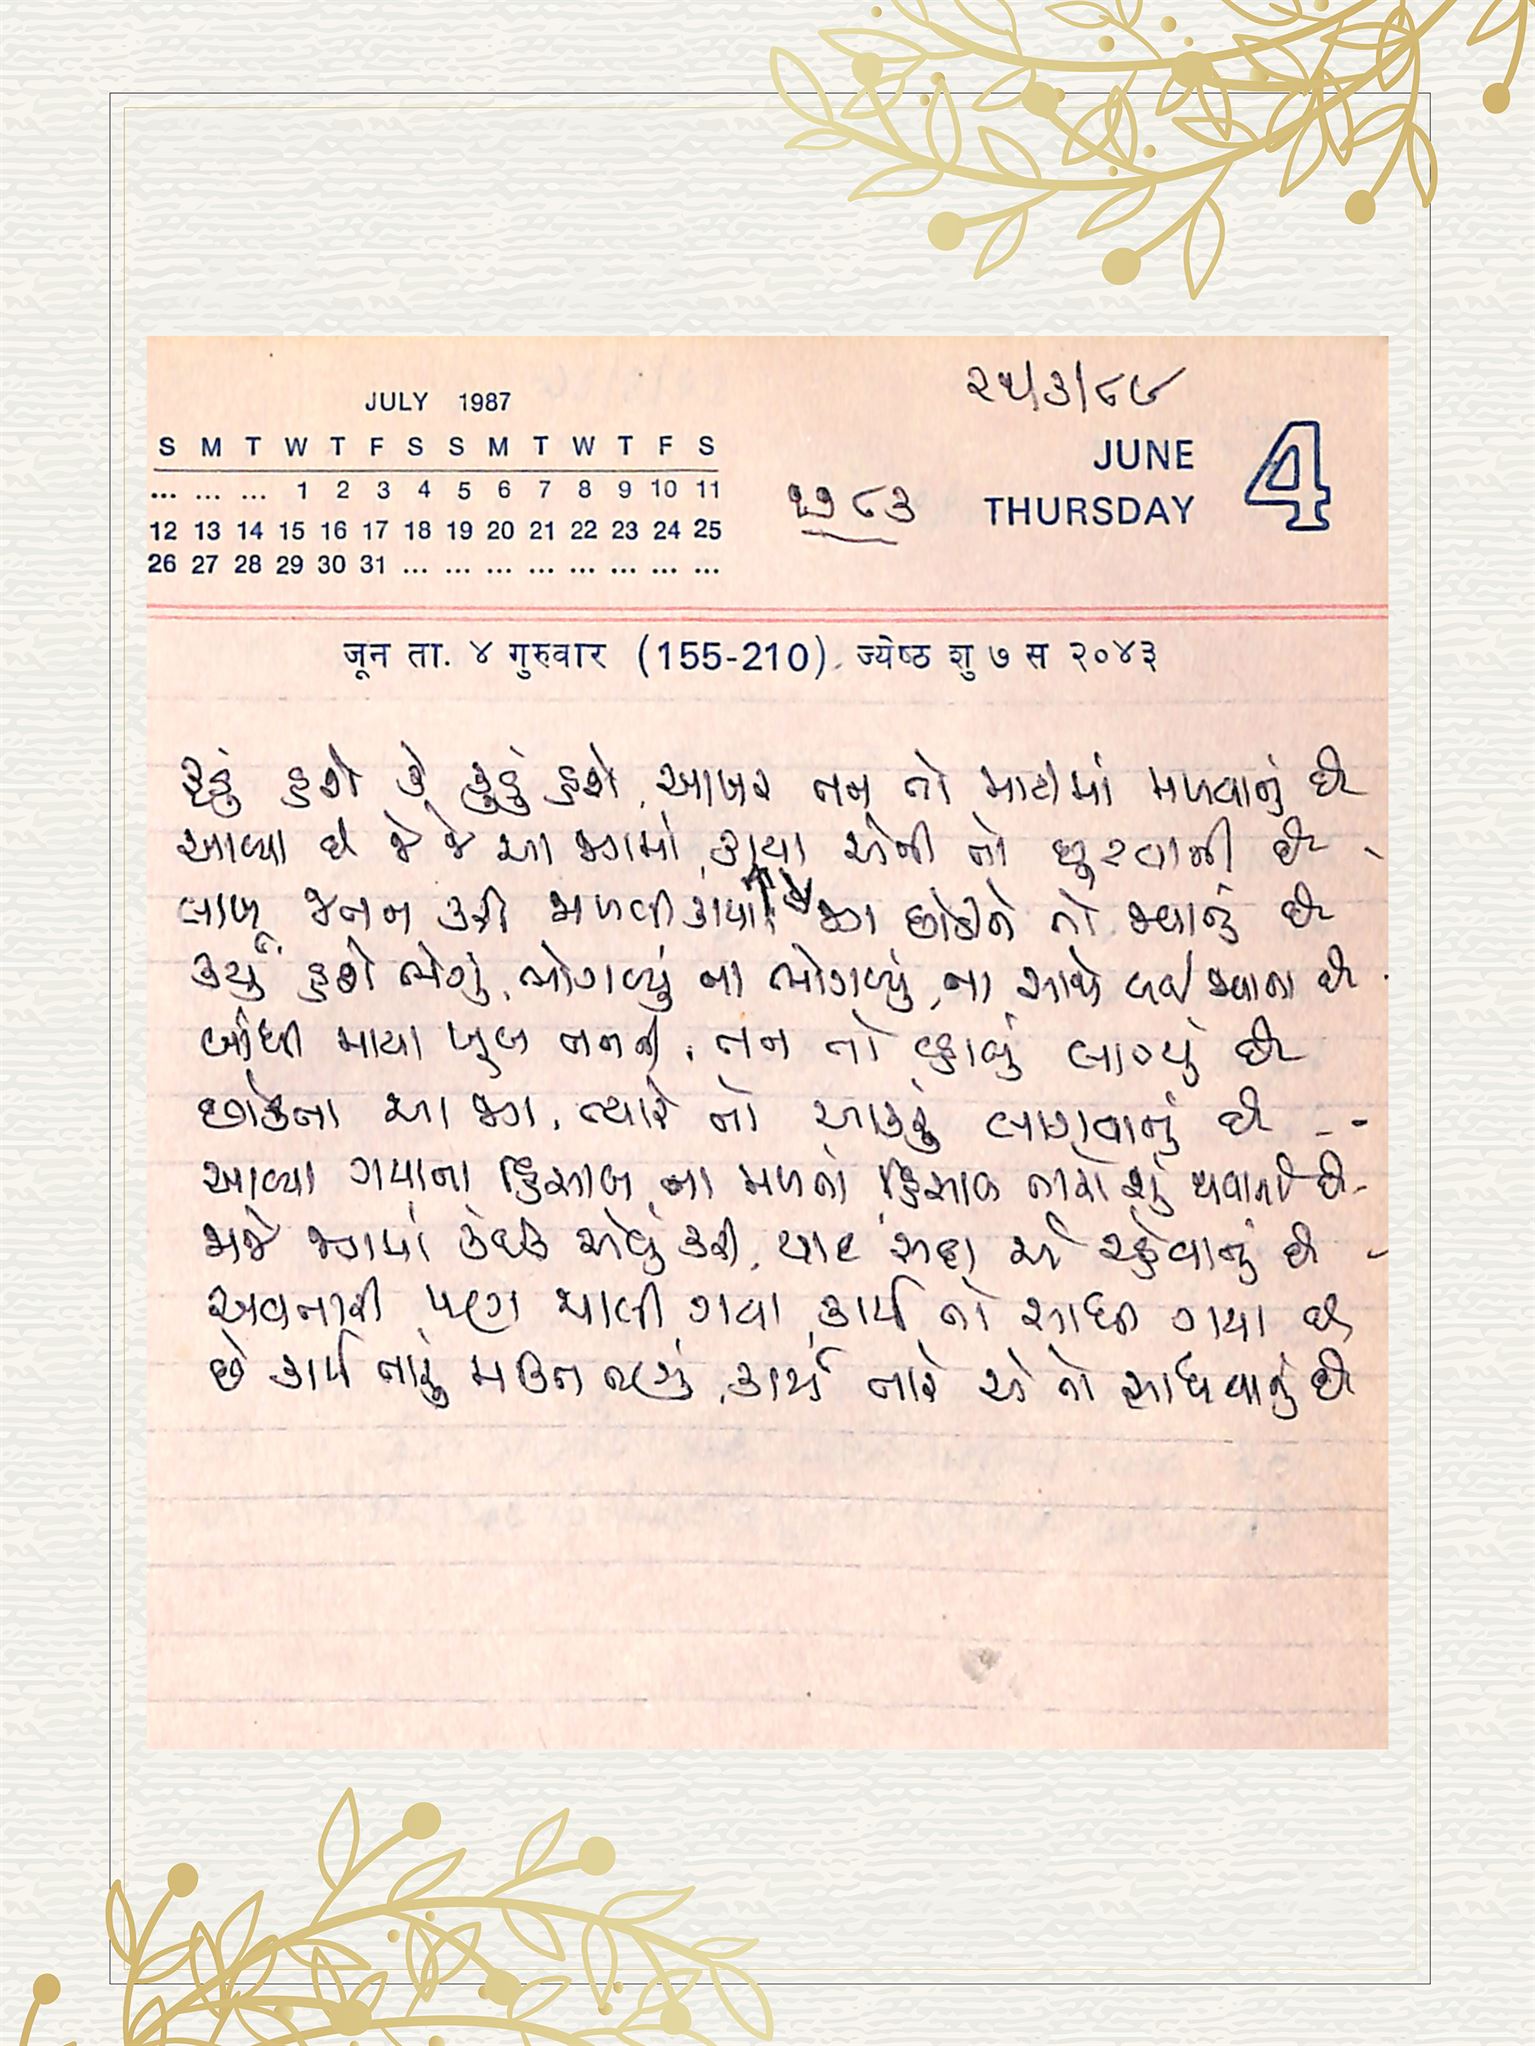 ૨૫/૩/૮૯
JULY 1987
S M T W T F S S M T W T F S
... ... ... 1 2 3 4 5 6 7 8 9 10 11
12 13 14 15 16 17 18 19 20 21 22 23 24 25
26 27 28 29 30 31 ... ... ... ... ... ... ... ...
JUNE
THURSDAY
4
जून ता. ४ गुरुवार (155-210) ज्येष्ठ शु ७ स २०४३
રૂડું હશે કે કૂડું હશે, આખર તન તો માટીમાં મળવાનું છે
આવ્યા છે જે જે આ જગમાં, કાયા એની તો છૂટવાની છે -
લાખ જનમ કરી મળતી કાયા, જગ છોડીને તો જવાનું છે
કર્યું હશે ભેગું, ભોગવ્યું ના ભોગવ્યું, ના સાથે લઈ જવાના છે
બાંધી માયા ખૂબ તનની, તન તો વ્હાલું લાગ્યું છે
છોડતા આ જગ, ત્યારે તો આકરું લાગવાનું છે --
આવ્યા ગયાના હિસાબ ના મળતો, હિસાબ તારો શું થવાનો છે -
મળે જગમાં કંઈક એવું કરી, યાદ સદા એ રહેવાનું છે -
અવતારી પણ ચાલી ગયા, કાર્ય તો સાધી ગયા છે
છે કાર્ય તારું મહાન ઘણું, કાર્ય તારે એ તો સાધવાનું છે